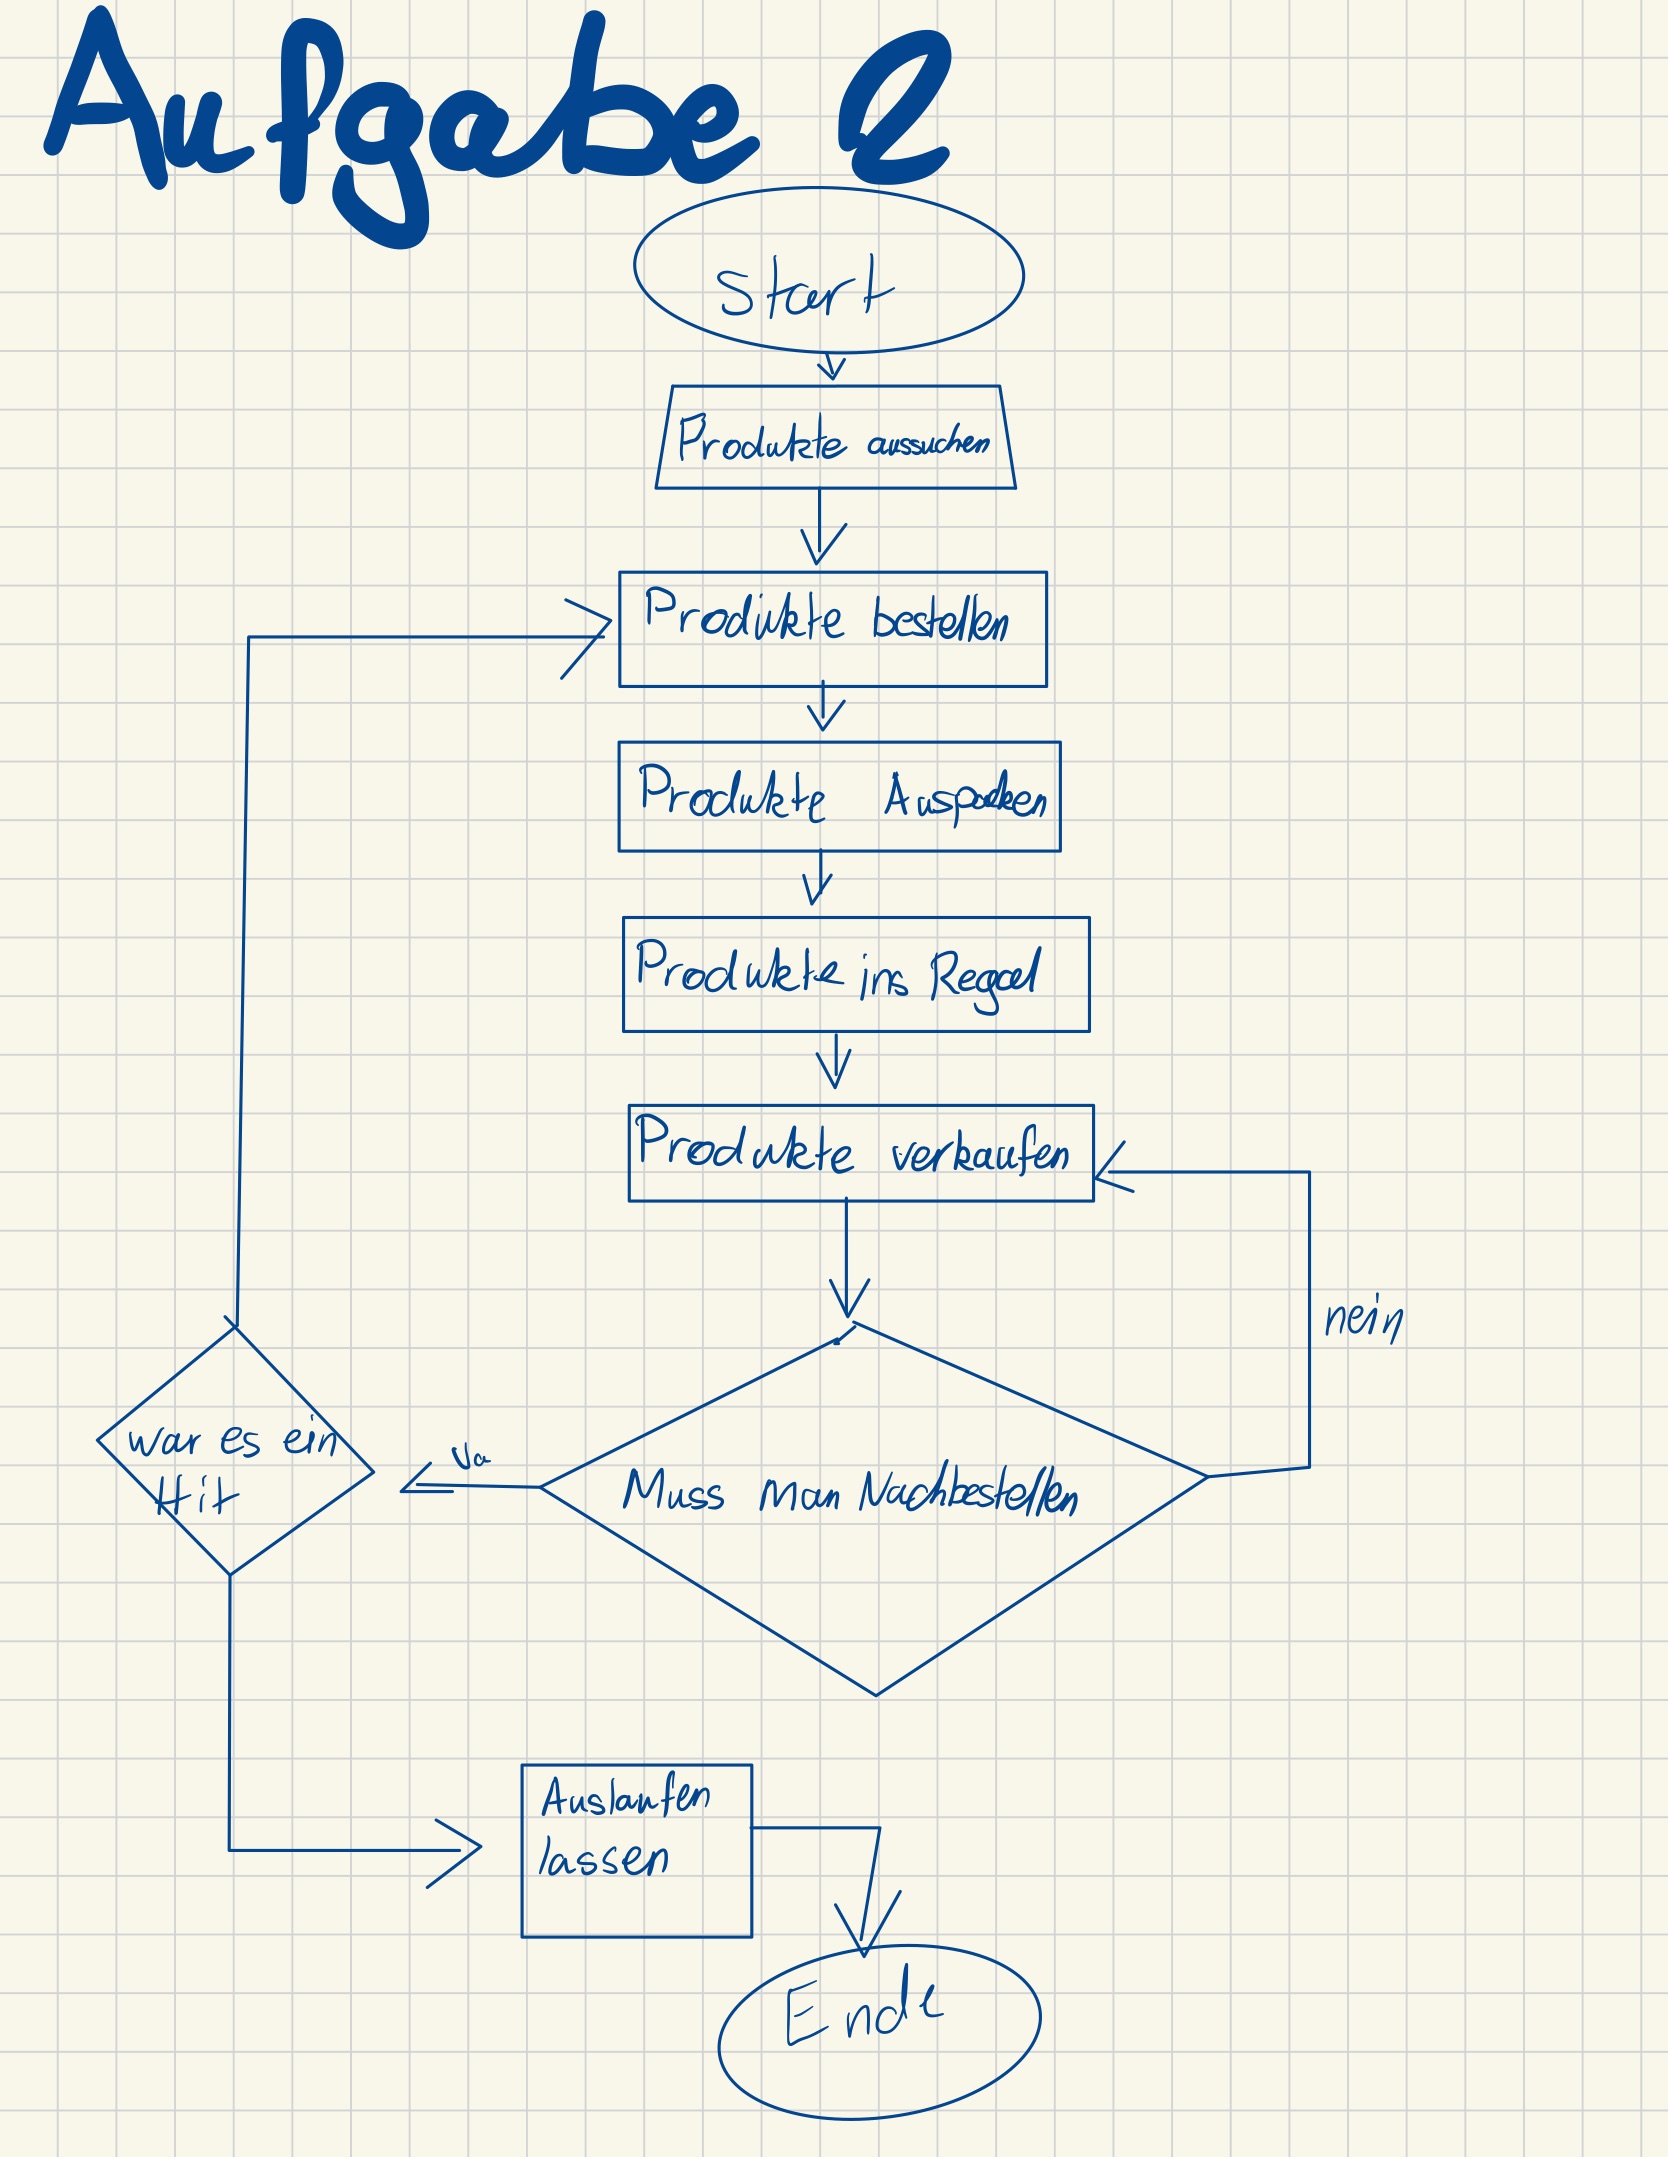 Aufgabe 2
Start
Produkte aussuchen
Produkte bestellen
Produkte Auspacken
Produkte ins Regal
Produkte verkaufen
nein
Muss man Nachbestellen
Ja
war es ein
Hit
Auslaufen
lassen
Ende